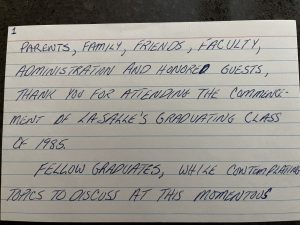 1
PARENTS, FAMILY, FRIENDS, FACULTY,
ADMINISTRATION AND HONORED GUESTS,
THANK YOU FOR ATTENDING THE COMMENCE-
MENT OF LASALLE'S GRADUATING CLASS
OF 1985.
FELLOW GRADUATES, WHILE CONTEMPLATING
TOPICS TO DISCUSS AT THIS MOMENTOUS